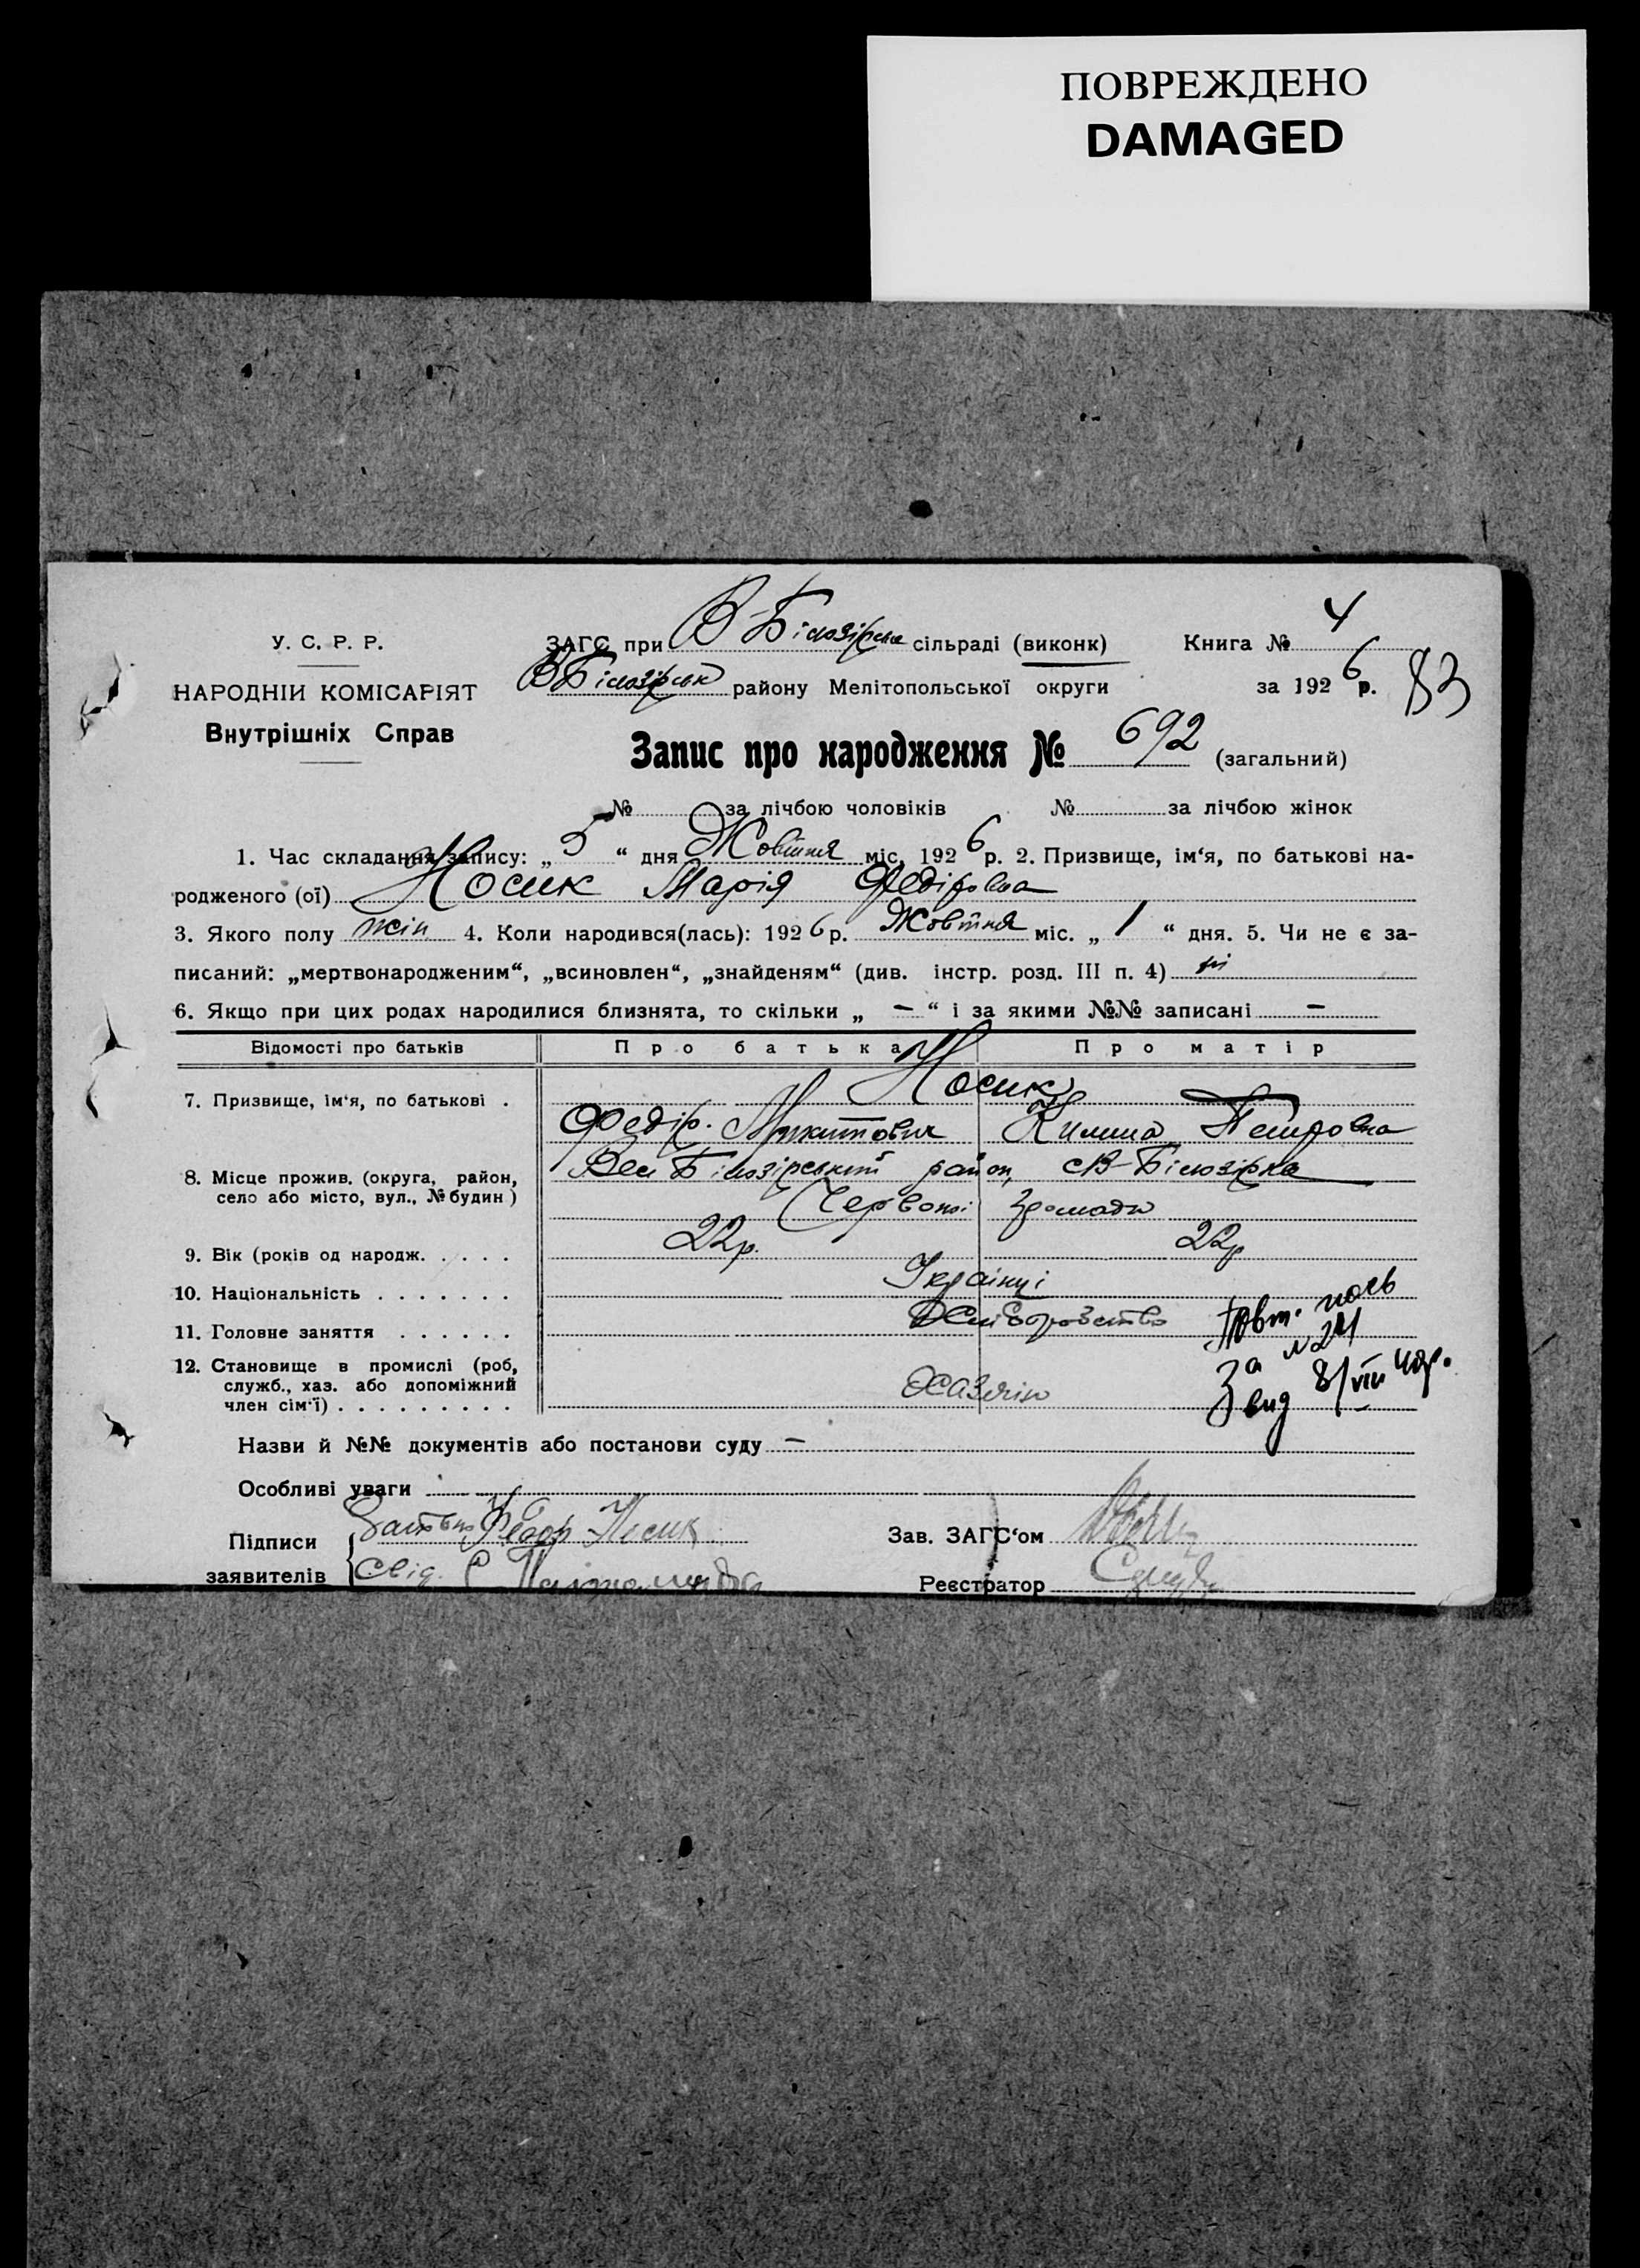 ПОВРЕЖДЕНО
DAMAGED
4
У. С. Р. Р.
ЗАГС при В-Білозірськ сільраді (виконк) Книга №
НАРОДНІЙ КОМІСАРІЯТ
В Білозірськ району Мелітопольської округи за 1926 р. 83
Внутрішніх Справ
Запис про народження № 692 (загальний)
№ за лічбою чоловіків № за лічбою жінок
1. Час складання запису: „ 5 “ дня Жовтня міс. 1926 р. 2. Призвище, ім‘я, по батькові на-
родженого (ої) Носик Марія Федіровна
3. Якого полу жін 4. Коли народився(лась): 1926 р. Жовтня міс. „ 1 “ дня. 5. Чи не є за-
писаний: „мертвонародженим“, „всиновлен“, „знайденям“ (див. інстр. розд. III п. 4) ні
6. Якщо при цих родах народилися близнята, то скільки „ — “ і за якими №№ записані —
Відомості про батьків Про батька Про матір
Носик
7. Призвище, ім‘я, по батькові .
Федір. Микитович Килина Петровна
8. Місце прожив. (округа, район, Вел Білозірський район, с В-Білозірка
село або місто, вул., № будин )
Червоної Громади
9. Вік (років од народж. . . . . 22р. 22р
10. Національність . . . . . . . Українці
11. Головне заняття . . . . . . Хліборобство
Повт.
за №21
12. Становище в промислі (роб,
служб., хаз. або допоміжний
член сім‘ї) . . . . . . . . . Хазяїн
вид 8/VIII 40р.
Назви й №№ документів або постанови суду —
Особливі уваги
Підписи Федор Носик Зав. ЗАГС‘ом
заявителів Свід. Реєстратор